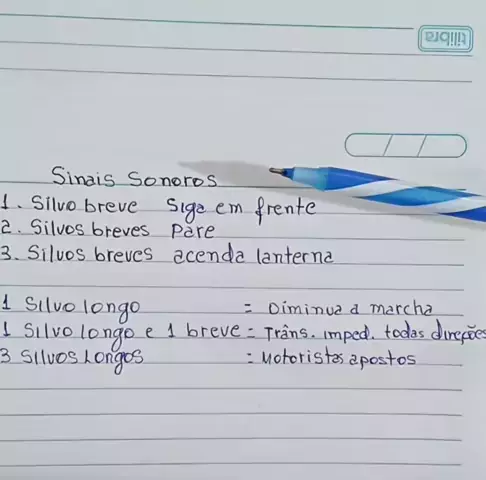 tilibra
Sinais Sonoros
1. Silvo breve Siga em frente
2. Silvos breves Pare
3. Silvos breves acenda lanterna
1 Silvo longo = Diminua a marcha
1 Silvo longo e 1 breve = Trâns. imped. todas direções
3 Silvos Longos = Motoristas apostos